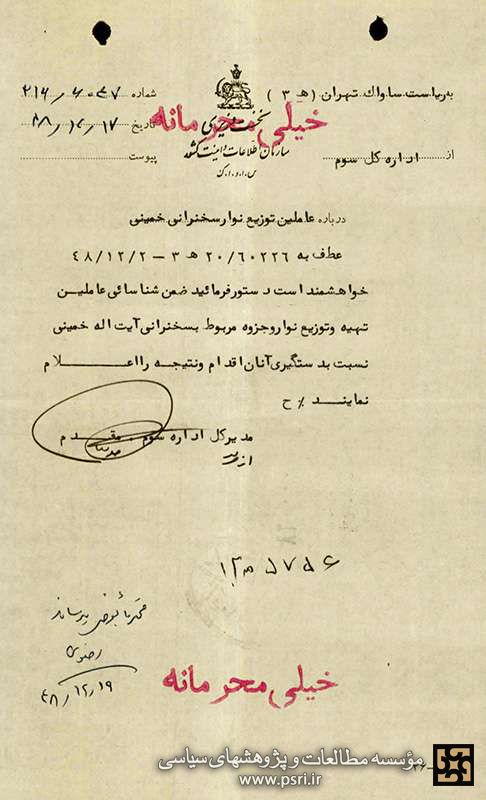 به ریاست ساواک تهران (هـ ۳)
شماره ۳۱۶/۶۰۴۷
نخست وزیری
خیلی محرمانه
تاریخ ۴۸/۱۲/۱۷
سازمان اطلاعات و امنیت کشور
از اداره کل سوم
پیوست
س.ا.و.ا.ک
درباره عاملین توزیع نوار سخنرانی خمینی
عطف به ۲۰/۶۰۲۲۶ هـ ۳ – ۴۸/۱۲/۲
خواهشمند است دستور فرمائید ضمن شناسائی عاملین
تهیه و توزیع نوار و جزوه مربوط بسخنرانی آیت اله خمینی
نسبت بدستگیری آنان اقدام و نتیجه را اعلام
نمایند ٪ ح
مدیر کل اداره سوم . مقدم
از طرف
رضوی
۴۸/۱۲/۱۹
خیلی محرمانه
مؤسسه مطالعات و پژوهشهای سیاسی
www.psri.ir